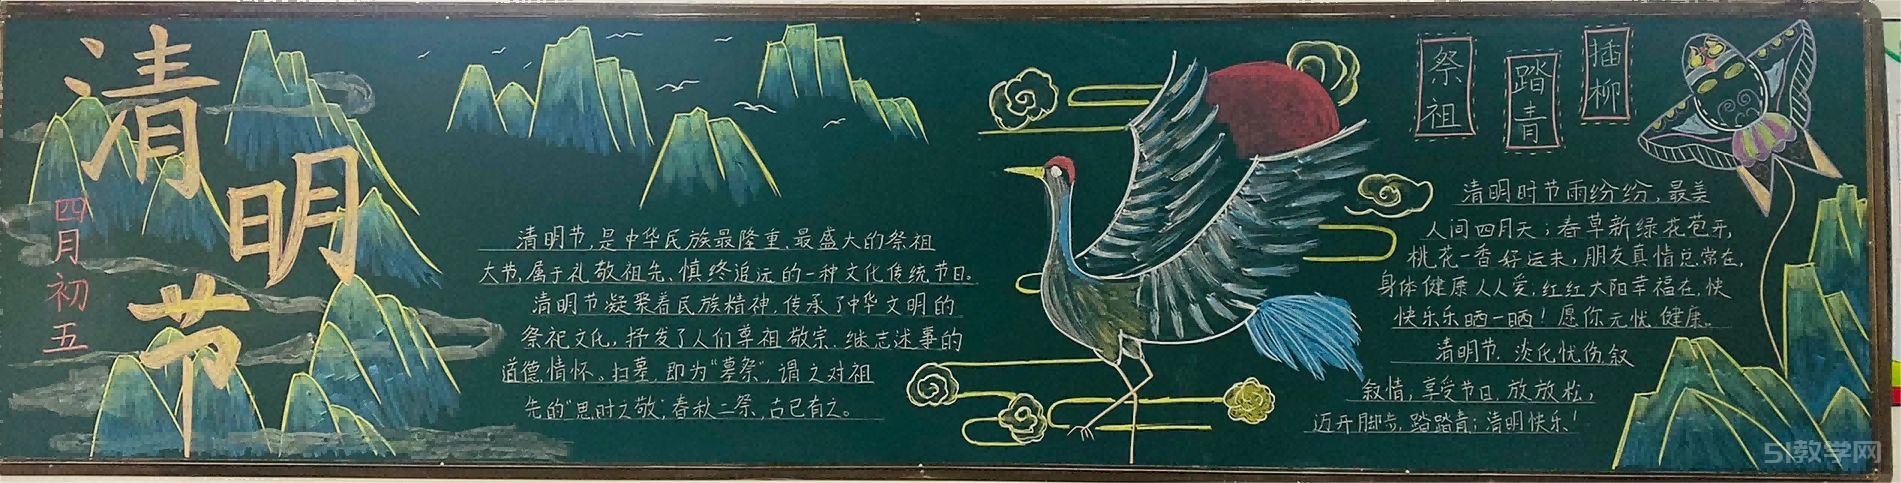 清明节
四月初五
清明节,是中华民族最隆重、最盛大的祭祖
大节,属于礼敬祖先、慎终追远的一种文化传统节日。
清明节凝聚着民族精神,传承了中华文明的
祭祀文化,抒发了人们尊祖敬宗、继志述事的
道德情怀。扫墓,即为“墓祭”,谓之对祖
先的“思时之敬;春秋二祭,古已有之。
祭祖
踏青
插柳
清明时节雨纷纷,最美
人间四月天;春草新绿花苞开,
桃花一香好运来,朋友真情总常在,
身体健康人人爱,红红太阳幸福在,快
快乐乐晒一晒!愿你无忧健康。
清明节,淡化忧伤,叙
叙情,享受节日,放放松,
迈开脚步,踏踏青;清明快乐!
51教学网